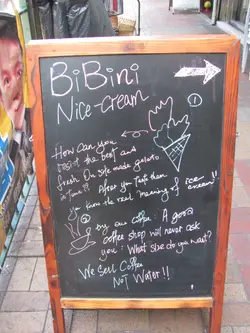 BiBini
Nice-Cream
①
How can you
resist the best and
fresh On site made gelato
in town?! After you taste them
you know the real meaning of ice cream!!
② try our coffee: A good
coffee shop will never ask
you: What size do you want?
We Sell Coffee
Not Water!!